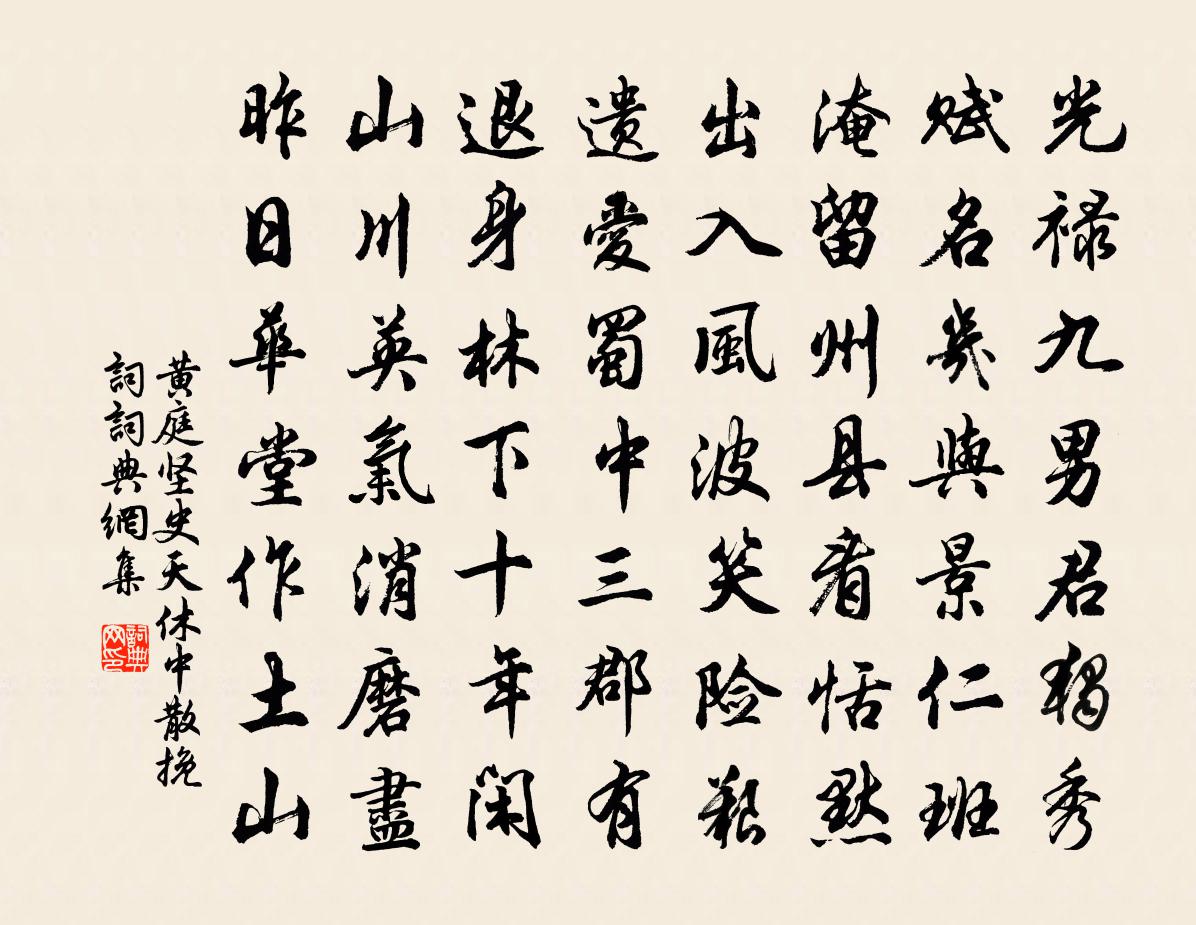 光禄九男君獨秀
赋名幾與景仁班
淹留州县看恬默
出入風波笑险艱
遗愛蜀中三郡有
退身林下十年闲
山川英氣消磨盡
昨日華堂作土山
黄庭坚史天休中散挽
詞詞典網集